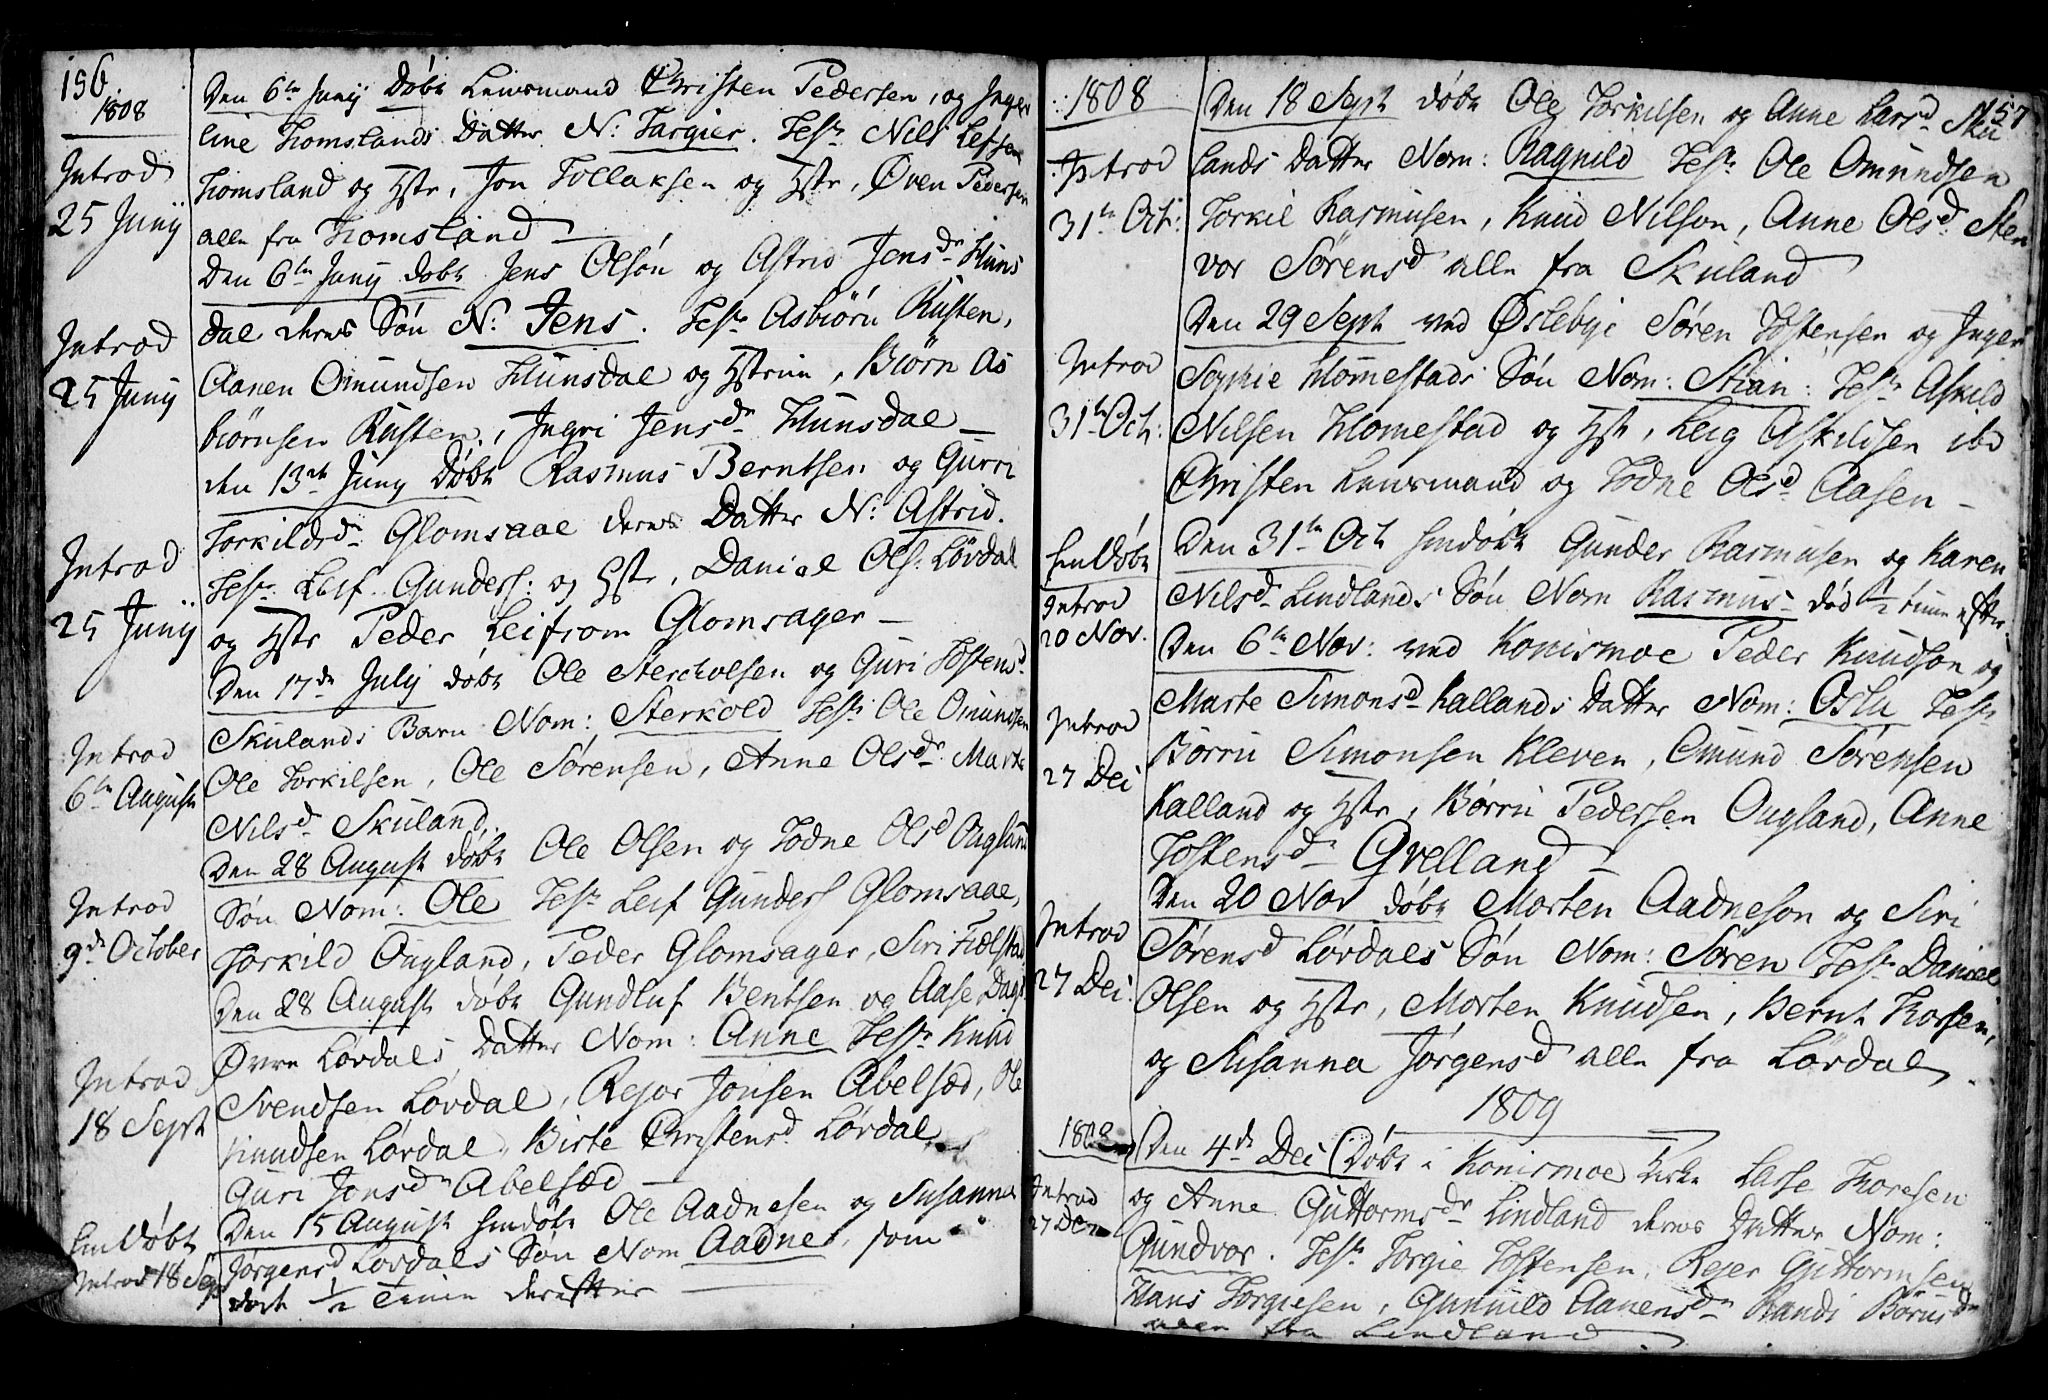 156
1808
Introd
25 Junij
Introd
25 Junij
Introd
25 Junij
Introd
6te August
Introd
9de October
Introd
18 Sept
HiemDøbt
Introd 18 Sept
Den 6te Junij Døbt Lensmand Christen Pedersen, og Inger
line Homslands Datter N: Targier. Test: Nils Lessen
Homsland og Hstr, Jon Tollaksen og Hstr, Øven Pedersen
alle fra Homsland
Den 6te Junij døbt Jens Olsøn og Astrid Jensdr Huns
dal deres Søn N: Jens. Test: Asbiørn Rusten,
Aanen Omundsen Hunsdal og Hstrue, Biørn As
biørnsen Rusten, Ingri Jensd Hunsdal
den 13de Juny Døbt Rasmus Berntsen og Gurri
Torkildsd Glomsaae deres Datter N: Astrid.
Test: Leif Gunders: og Hstr, Daniel Ols: Løvdal
og Hstr Peder Leifson Glomsager
Den 17de Julij døbt Ole Sterckolsen og Guri Tostensd
Skulands Barn Nom: Sterkold Test: Ole Omundsen
Ole Torkilsen, Ole Sørensen, Anne Olsdr Marte
Nilsd Skuland.
Den 28 August døbt Ole Olsen og Todne Olsd Ougland
Søn Nom: Ole Test: Leif Gunders Glomsaae,
Torkild Ougland, Peder Glomsager, Siri Fielstad
Den 28 August døbt Gundluf Bentsen og Aase Dags
Øvre Løvdals Datter Nom: Anne Test: Knud
Svendsen Løvdal, Rejor Jonsen Abelsæd, Ole
Knudsen Løvdal, Birte Christensd Løvdal
Guri Jonsd Abelsæd
Den 15 August hiemdøbt Ole Aadnesen og Susanna
Jørgensd Løvdals Søn Nom Aadne, som
døde 1/2 Time derefter
157
1808
Introd
31te Oct:
Introd
31te Oct:
HiemDøbt
Introd
20 Nov.
Introd
27 Dec
Introd
27 Dec:
1808
Introd
27 Dec
Den 18 Sept døbt Ole Torkilsen og Anne Larsd Sku
lands Datter Nom: Ragnild Test: Ole Omundsen
Torkil Rasmusen, Knud Nilson, Anne Olsd Sten
vor Sørensd alle fra Skuland
Den 29 Sept ved Øslebye Søren Tostensen og Inger
Sophie Homestads Søn Nom: Stian: Test: Askild
Nilsen Homestad og Hstr, Leig Askildsen ibd
Christen Lensmand og Todne Olsd Aasen
Den 31te Oct hiemdøbt Gunder Rasmusen og Karen
Nilsd Lindlands Søn Nom Rasmus død 1/2 time efter.
Den 6te Nov: ved Konismoe Peder Knudson og
Marte Simonsd Kallands Datter Nom: Oslu Test:
Børru Simonsen Kleven, Omund Sørensen
Kalland og Hstr, Børru Pedersen Ougland, Anne
Tostensd Qvelland
Den 20 Nov døbt Morten Aadneson og Siri
Sørensd Løvdals Søn Nom: Søren Test: Daniel
Olsen og Hstr, Morten Knudsen, Bernt Thorsen,
og Susanna Jørgensd alle fra Løvdal
1809
Den 4de Dec Døbt i Konismoe Kirke Lasse Thoresen
og Anne Guttormsdr Lindland deres Datter Nom:
Gundvor. Test: Torgie Tostensen, Rejer Guttormsen
Hans Torgiesen, Gunnild Aanensdr Randi Børusdr
alle fra Lindland